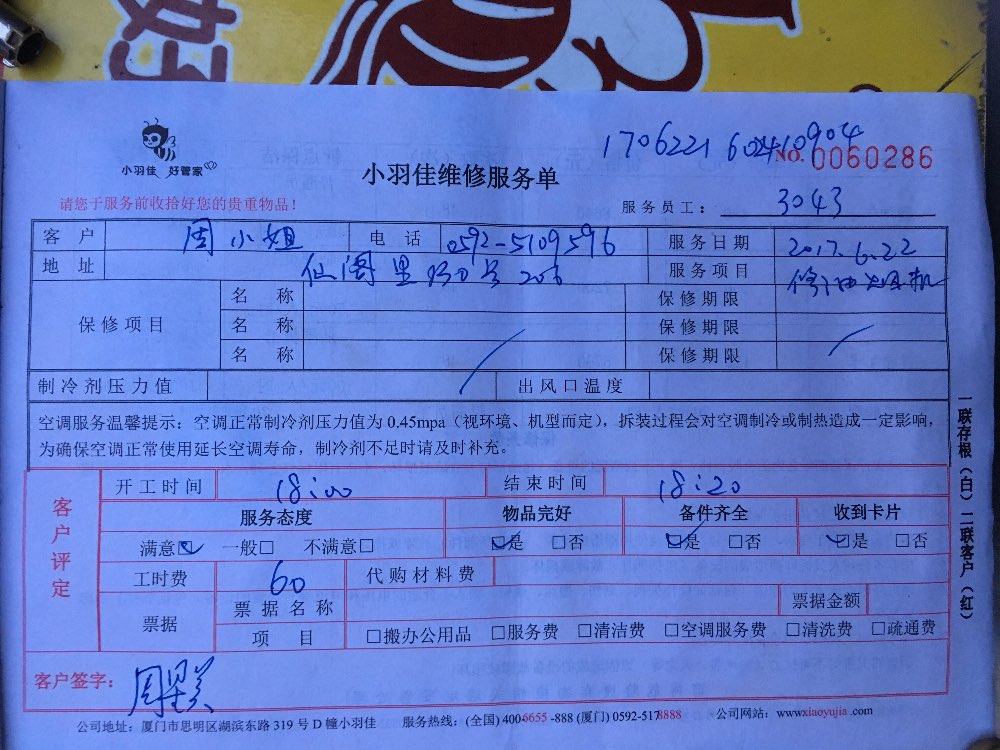 小羽佳 好管家
小羽佳维修服务单
1706221602410904
NO. 0060286
请您于服务前收拾好您的贵重物品！
服务员工： 3043
客户 周小姐 电话 0592-5109596 服务日期 2017.6.22
地址 仙阁里 号 206 服务项目 修油烟机
保修项目
名称 保修期限
名称 保修期限
名称 保修期限
制冷剂压力值 出风口温度
空调服务温馨提示：空调正常制冷剂压力值为 0.45mpa（视环境、机型而定），拆装过程会对空调制冷或制热造成一定影响，
为确保空调正常使用延长空调寿命，制冷剂不足时请及时补充。
客户评定
开工时间 18:00 结束时间 18:20
服务态度 物品完好 备件齐全 收到卡片
满意☑ 一般□ 不满意□ ☑是 □否 ☑是 □否 ☑是 □否
工时费 60 代购材料费
票据 票据名称 票据金额
项目 □搬办公用品 □服务费 □清洁费 □空调服务费 □清洗费 □疏通费
客户签字：
公司地址：厦门市思明区湖滨东路 319 号 D 幢小羽佳 服务热线：(全国) 400-6655-888 (厦门) 0592-5178888 公司网站：www.xiaoyujia.com
一联存根（白）二联客户（红）